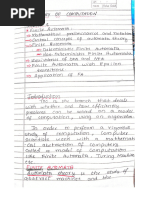 THEORY OF COMPUTATION
Finite Automata
Mathematical preliminaries and Notation
Central concepts of automata theory
Finite Automata
Deterministic Finite Automata
Non Deterministic Finite Automata
of DFA and NFA
Finite Automata with Epsilon
transition
Application of FA
Introduction
TOC is the branch that deals
with whether and how efficiently
problems can be solved on a model of
computation using an
In order to perform a rigorous
study of computation, computer
Scientist work with a mathematical
abstraction of computers
called a model of computation
Finite Automata, Turing Machine
FINITE AUTOMATA
Automata theory is the study of
abstract machines and